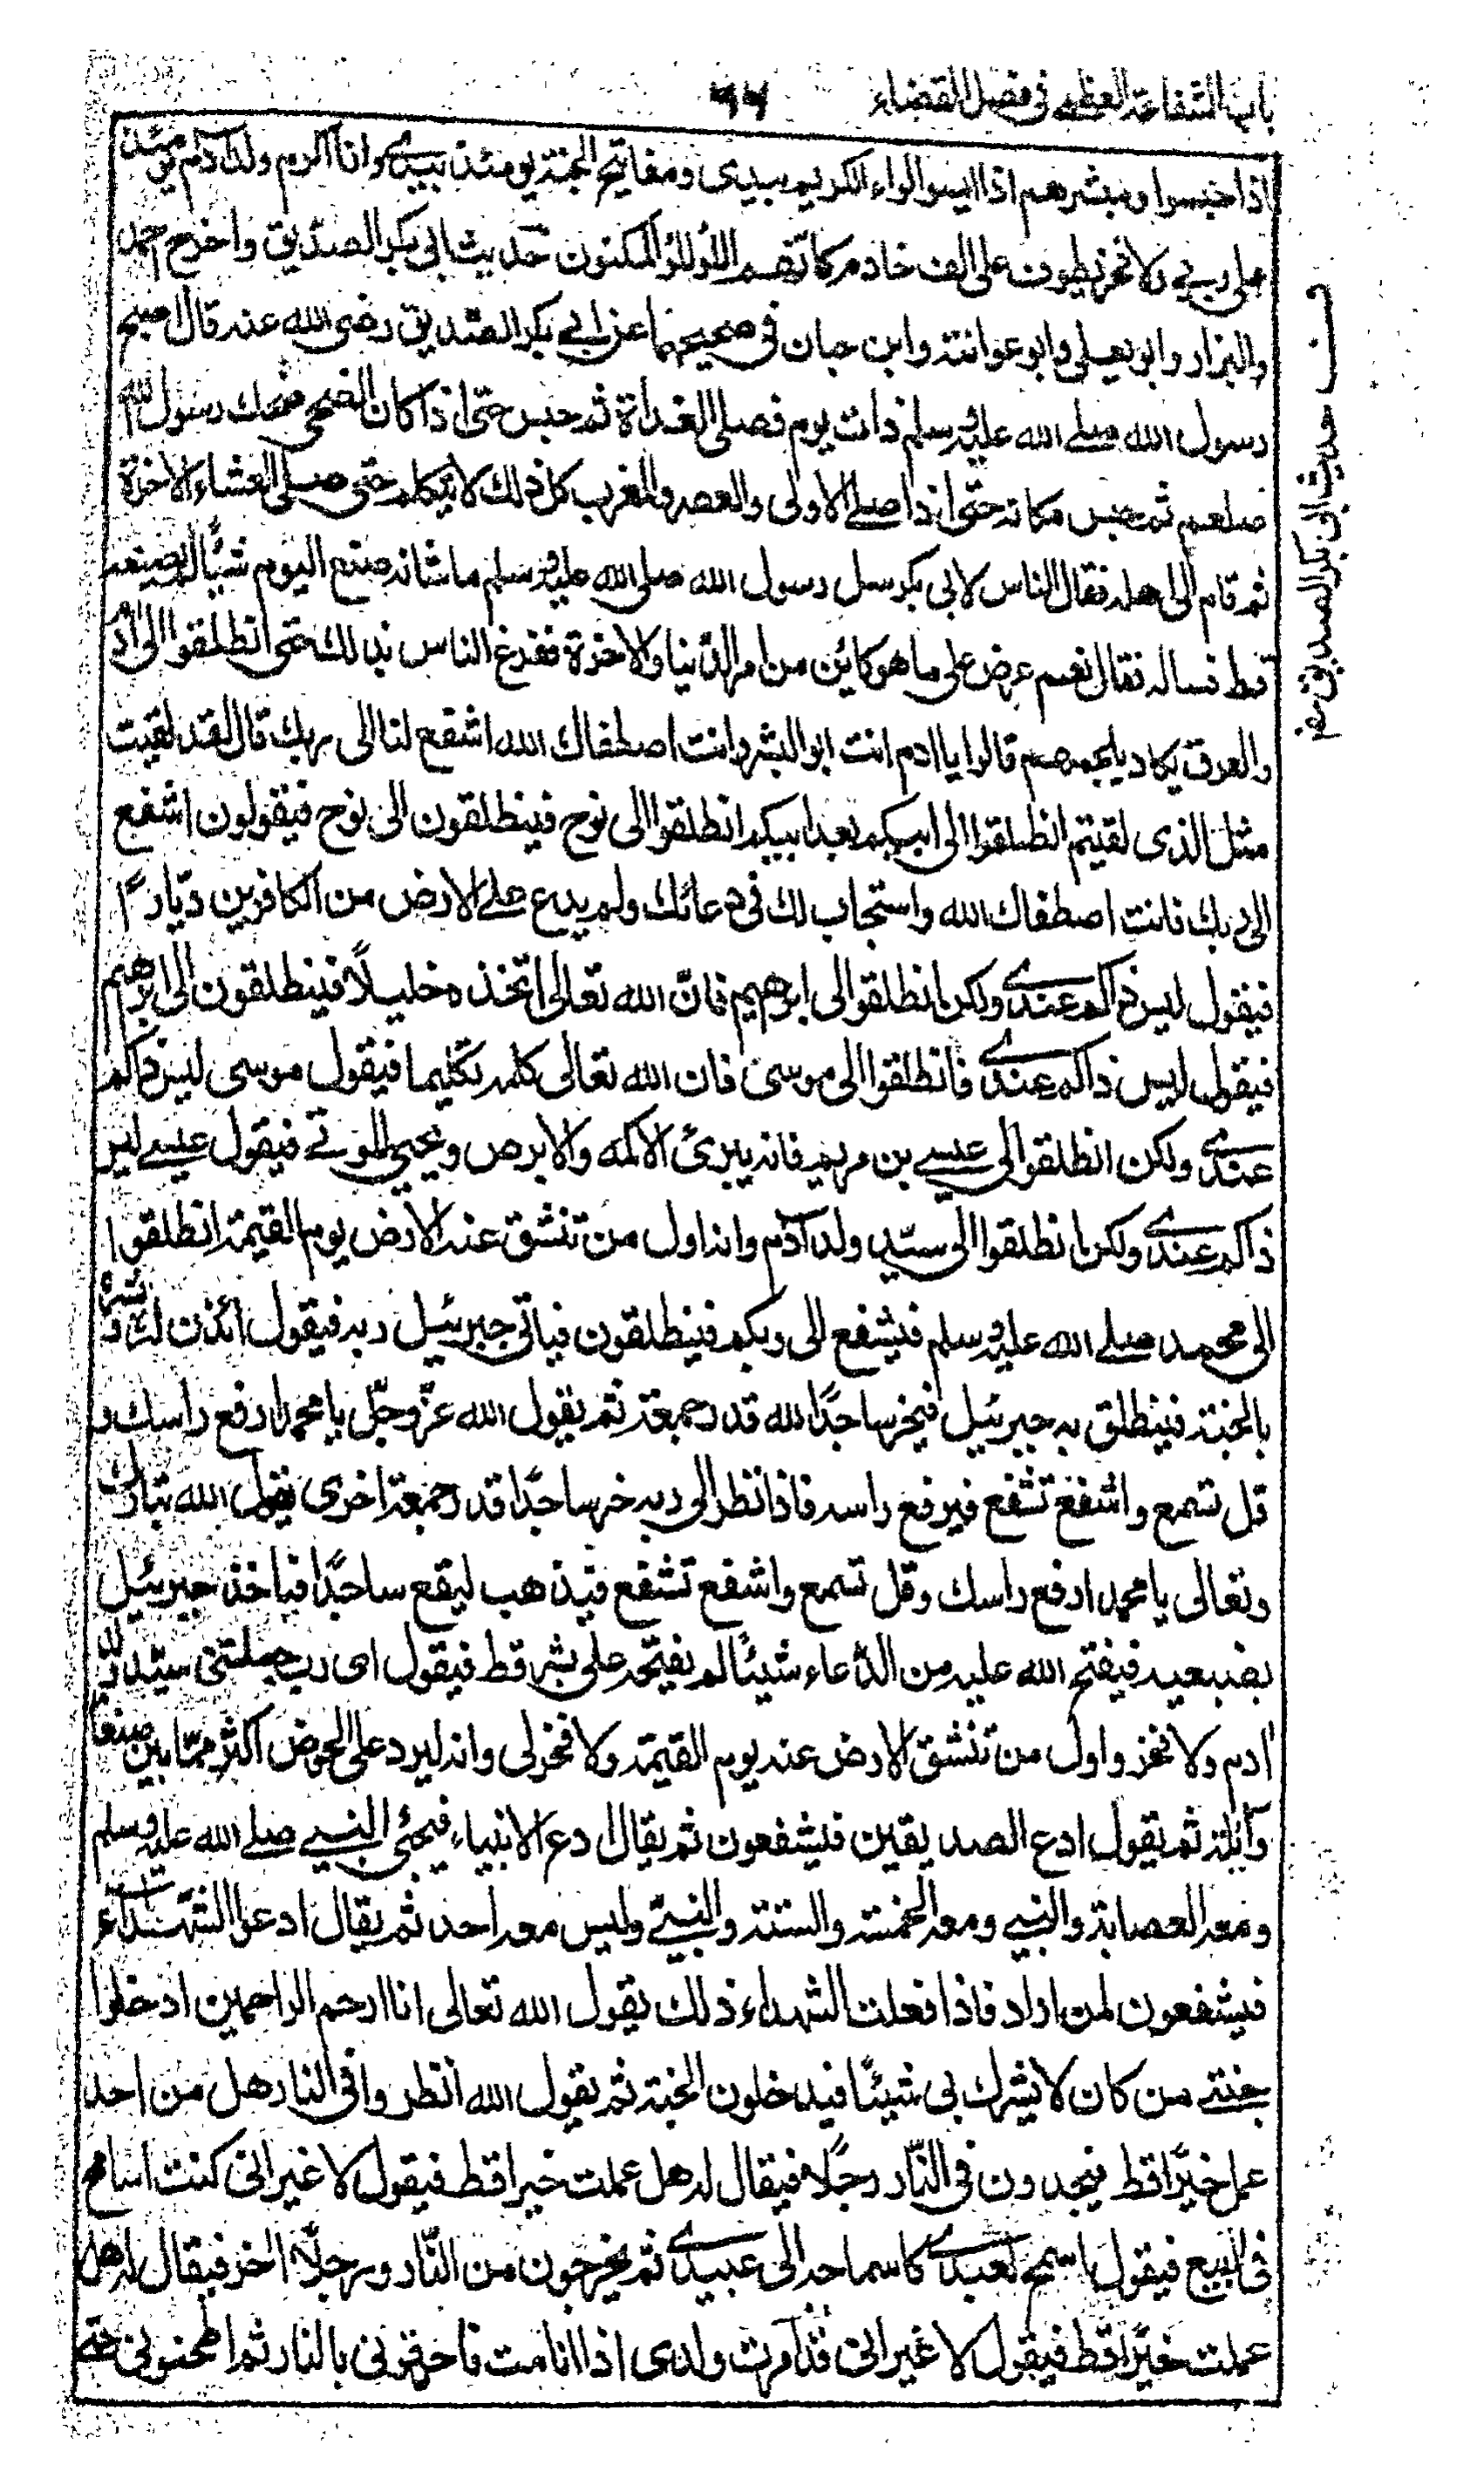 باب الشفاعة العظمى فى فصل القضاء ٦٦
اذا حبسوا ومبشرهم اذا ايسوا لواء الكريم بيدى ومفاتيح الجنة يومئذ بيدى وانا اكرم ولد ادم يومئذ
على ربى ولا فخر يطوف على الف خادم كانهم اللؤلؤ المكنون حديث ابى بكر الصديق واخرج احمد
والبزار وابو يعلى وابو عوانة وابن حبان فى صحيحهما عن ابى بكر الصديق رضى الله عنه قال اصبح
رسول الله صلى الله عليه وسلم ذات يوم فصلى الغداة ثم جلس حتى اذا كان الضحى ضحك رسول الله
صلعم ثم جلس مكانه حتى اذا صلى الاولى والعصر والمغرب كل ذلك لا يتكلم حتى صلى العشاء الاخرة
ثم قام الى اهله فقال الناس لابى بكر سل رسول الله صلى الله عليه وسلم ما شانه صنع اليوم شيئا لم يصنعه
قط فساله فقال نعم عرض على ما هو كائن من امر الدنيا والاخرة ففزع الناس بذلك حتى انطلقوا الى ادم
والعرق يكاد يلجمهم قالوا يا ادم انت ابو البشر وانت اصطفاك الله اشفع لنا الى ربك قال لقد لقيت
مثل الذى لقيتم انطلقوا الى ابيكم بعد ابيكم انطلقوا الى نوح فينطلقون الى نوح فيقولون اشفع
الى ربك فانت اصطفاك الله واستجاب لك فى دعائك ولم يدع على الارض من الكافرين ديارًا
فيقول ليس ذاكم عندى ولكن انطلقوا الى ابرهيم فانّ الله تعالى اتخذه خليلاً فينطلقون الى ابرهيم
فيقول ليس ذاكم عندى فانطلقوا الى موسى فان الله تعالى كلمه تكليما فيقول موسى ليس ذاكم
عندى ولكن انطلقوا الى عيسى بن مريم فانه يبرئ الاكمه والابرص ويحيى الموتى فيقول عيسى ليس
ذاكم عندى ولكن انطلقوا الى سيّد ولد آدم وانه اول من تنشق عنه الارض يوم القيمة انطلقوا
الى محمد صلى الله عليه وسلم فيشفع الى ربكم فينطلقون فياتى جبرئيل ربه فيقول ائذن له وبشره
بالجنة فينطلق به جبرئيل فيخر ساجدًا لله قدر جمعة ثم يقول الله عزّ وجلّ يا محمد ارفع راسك و
قل تسمع واشفع تشفع فيرفع راسه فاذا نظر الى ربه خر ساجدًا قدر جمعة اخرى يقول الله تبارك
وتعالى يا محمد ارفع راسك وقل تسمع واشفع تشفع فيذهب ليقع ساجدًا فياخذ جبرئيل
بضبعيه فيفتح الله عليه من الدّعاء شيئًا لم يفتحه على بشر قط فيقول اى رب جعلتنى سيّد ولد
ادم ولا فخر واول من تنشق الارض عنه يوم القيمة ولا فخر لى وانه ليرد على الحوض اكثر ممّا بين صنعا
وآيلة ثم يقول ادع الصديقين فيشفعون ثم يقال ادع الانبياء فيجئ النبى صلى الله عليه وسلم
ومعه العصابة والنبى ومعه الخمسة والستة والنبىّ وليس معه احد ثم يقال ادعوا الشهداء
فيشفعون لمن اراد فاذا فعلت الشهداء ذلك يقول الله تعالى انا ارحم الراحمين ادخلوا
جنتى من كان لا يشرك بى شيئًا فيدخلون الجنة ثم يقول الله انظروا فى النار هل من احد
عمل خيرًا قط فيجدون فى النّار رجلًا فيقال له هل عملت خيرا قط فيقول لا غير انى كنت اسامح
فى البيع فيقول اسمح لعبدى كاسماحه الى عبيدى ثم يخرجون من النّار رجلًا اخر فيقال له هل
عملت خيرًا قط فيقول لا غير انى قد آمرت ولدى اذا انا مت فاحرقونى بالنار ثم اطحنونى حتى
حديث ابى بكر الصديق رضى